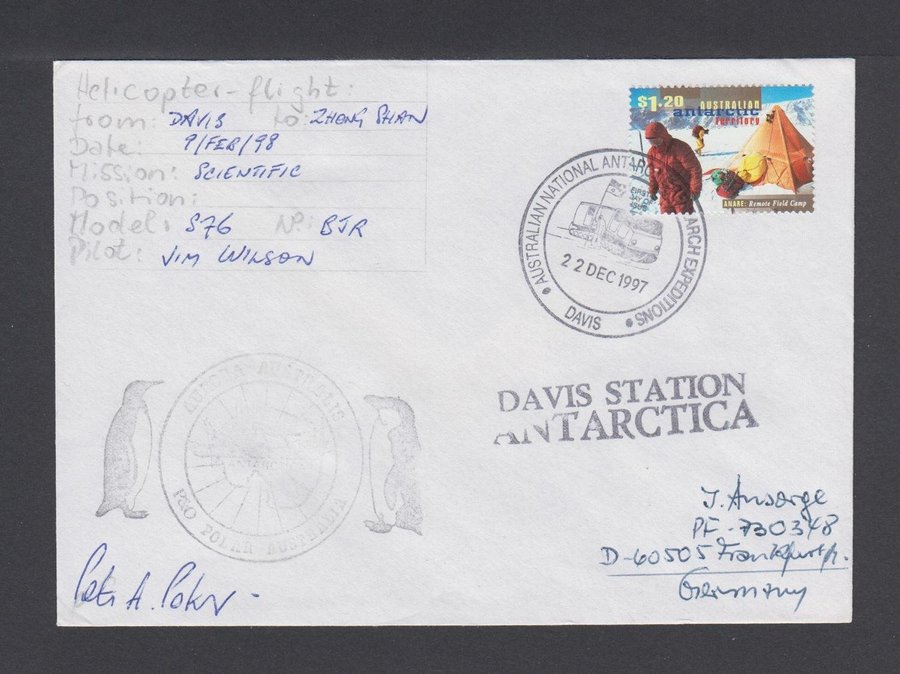 Helicopter-flight:
from: DAVIS to: ZHONG SHAN
Date: 9/FEB/98
Mission: SCIENTIFIC
Position:
Model: S76 No: BJR
Pilot: JIM WILSON
$1.20 AUSTRALIAN
antarctic
Territory
ANARE: Remote Field Camp
AUSTRALIAN NATIONAL ANTARC RCH EXPEDITIONS
FIRST
DAY OF
ISSUE
22 DEC 1997
DAVIS
DAVIS STATION
ANTARCTICA
AURORA AUSTRALIS
P&O POLAR AUSTRALIA
J. Ansorge
PF-730348
D-60505 Frankfurt
Germany